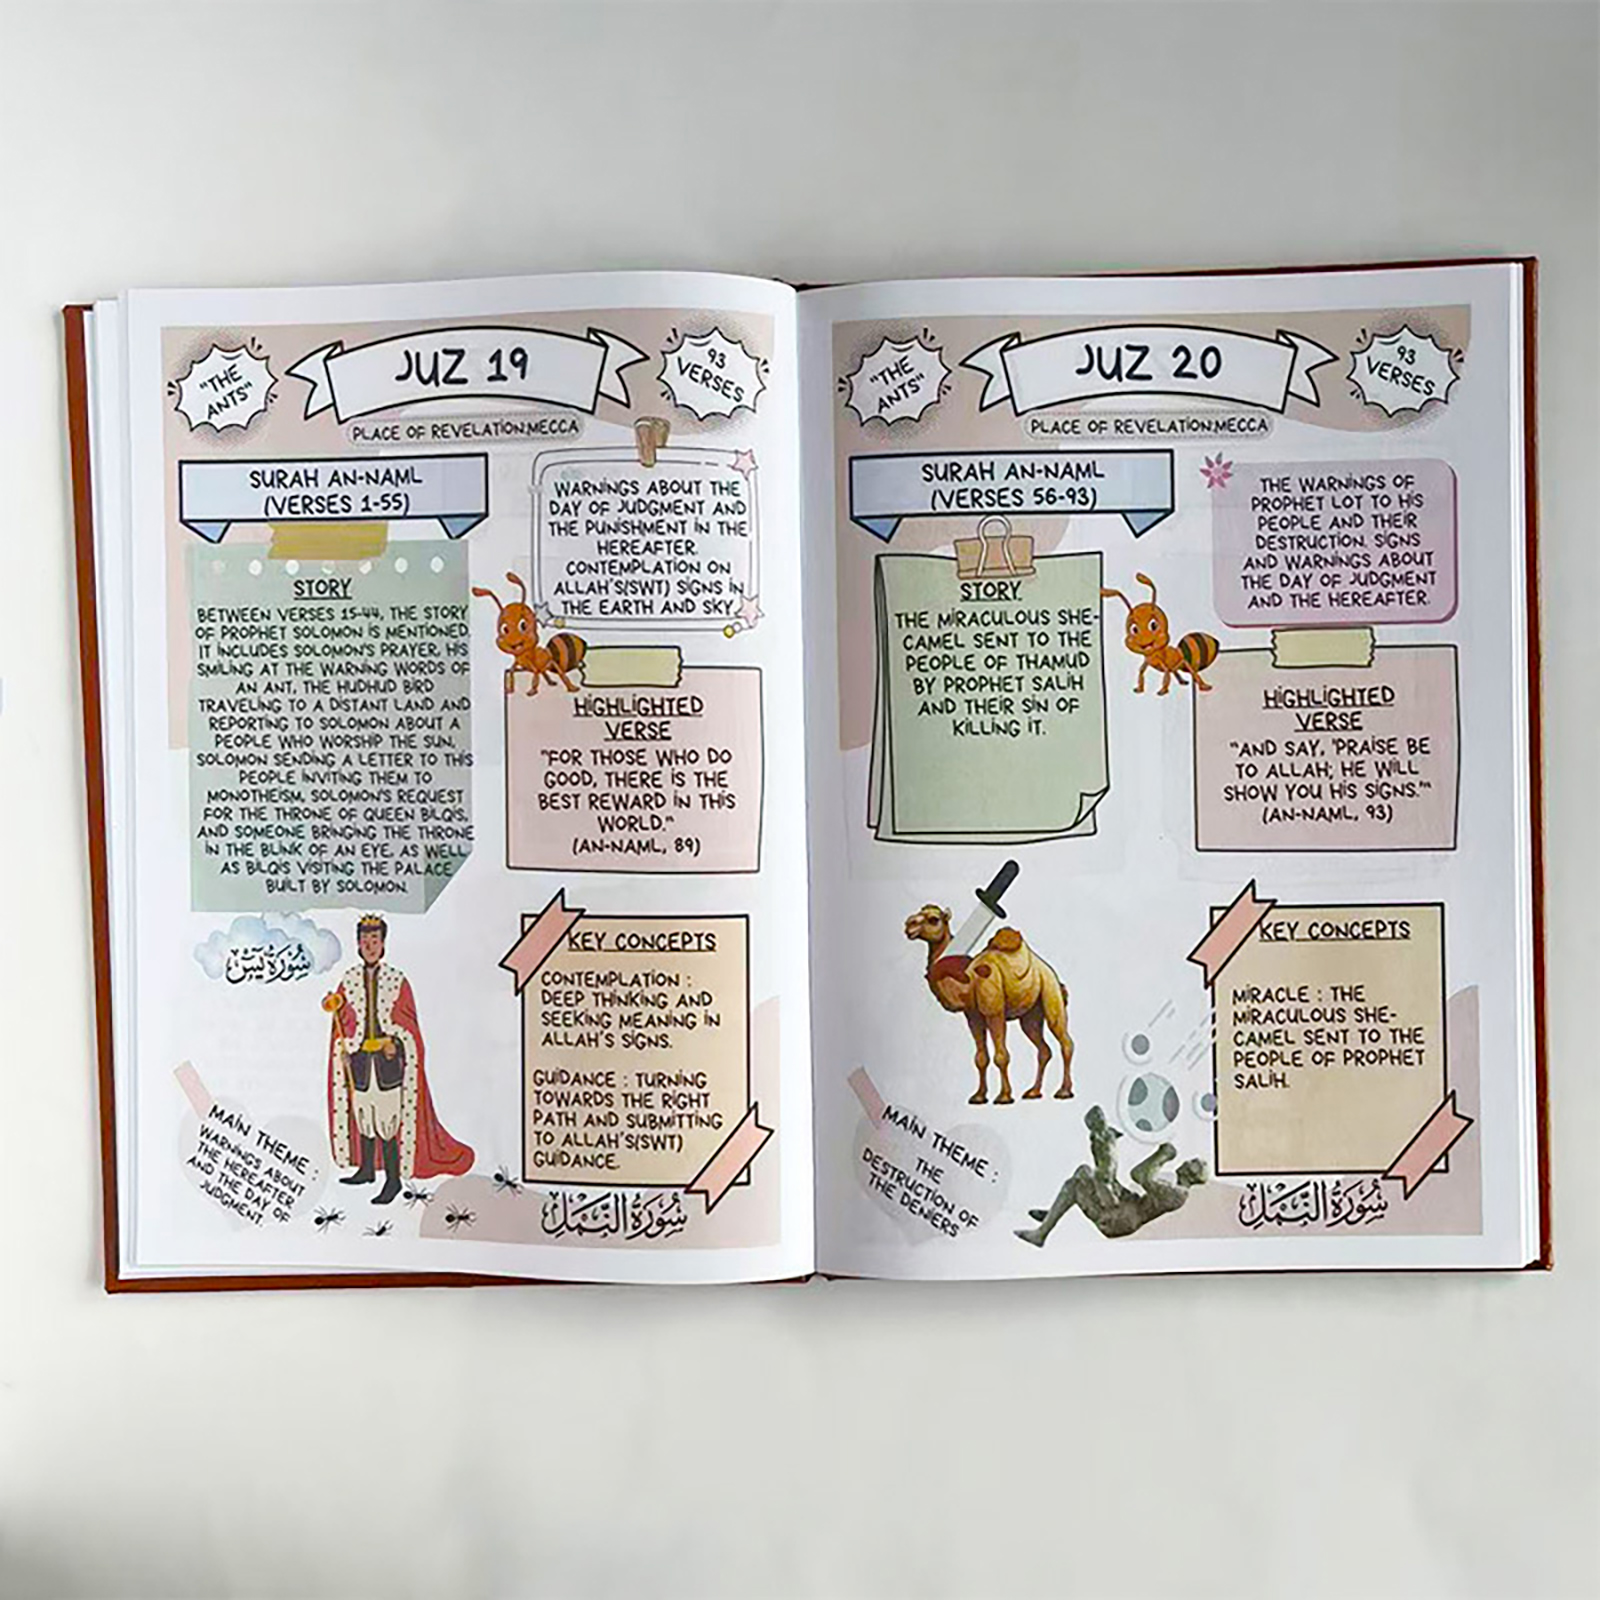 "THE
ANTS"
JUZ 19
93
VERSES
PLACE OF REVELATION:MECCA
SURAH AN-NAML
(VERSES 1-55)
STORY
BETWEEN VERSES 15-44, THE STORY
OF PROPHET SOLOMON IS MENTIONED.
IT INCLUDES SOLOMON'S PRAYER, HIS
SMILING AT THE WARNING WORDS OF
AN ANT, THE HUDHUD BIRD
TRAVELING TO A DISTANT LAND AND
REPORTING TO SOLOMON ABOUT A
PEOPLE WHO WORSHIP THE SUN,
SOLOMON SENDING A LETTER TO THIS
PEOPLE INVITING THEM TO
MONOTHEISM, SOLOMON'S REQUEST
FOR THE THRONE OF QUEEN BILQIS,
AND SOMEONE BRINGING THE THRONE
IN THE BLINK OF AN EYE, AS WELL
AS BILQIS VISITING THE PALACE
BUILT BY SOLOMON.
WARNINGS ABOUT THE
DAY OF JUDGMENT AND
THE PUNISHMENT IN THE
HEREAFTER.
CONTEMPLATION ON
ALLAH'S(SWT) SIGNS IN
THE EARTH AND SKY.
HIGHLIGHTED
VERSE
"FOR THOSE WHO DO
GOOD, THERE IS THE
BEST REWARD IN THIS
WORLD."
(AN-NAML, 89)
سُورَةُ يس
KEY CONCEPTS
CONTEMPLATION :
DEEP THINKING AND
SEEKING MEANING IN
ALLAH'S SIGNS.
GUIDANCE : TURNING
TOWARDS THE RIGHT
PATH AND SUBMITTING
TO ALLAH'S(SWT)
GUIDANCE.
MAIN THEME :
WARNINGS ABOUT
THE HEREAFTER
AND THE DAY OF
JUDGMENT.
سُورَةُ النَّمْلِ
"THE
ANTS"
JUZ 20
93
VERSES
PLACE OF REVELATION:MECCA
SURAH AN-NAML
(VERSES 56-93)
STORY
THE MIRACULOUS SHE-
CAMEL SENT TO THE
PEOPLE OF THAMUD
BY PROPHET SALIH
AND THEIR SIN OF
KILLING IT.
THE WARNINGS OF
PROPHET LOT TO HIS
PEOPLE AND THEIR
DESTRUCTION. SIGNS
AND WARNINGS ABOUT
THE DAY OF JUDGMENT
AND THE HEREAFTER.
HIGHLIGHTED
VERSE
"AND SAY, 'PRAISE BE
TO ALLAH; HE WILL
SHOW YOU HIS SIGNS.'"
(AN-NAML, 93)
KEY CONCEPTS
MIRACLE : THE
MIRACULOUS SHE-
CAMEL SENT TO THE
PEOPLE OF PROPHET
SALIH.
MAIN THEME :
THE
DESTRUCTION OF
THE DENIERS
سُورَةُ النَّمْلِ